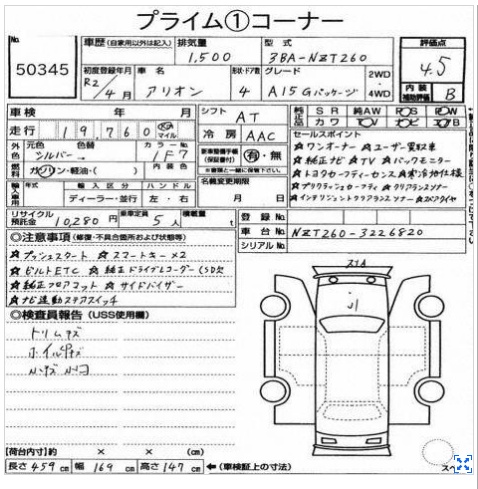 プライム①コーナー
No. 50345
車歴 (自家用以外は記入) 排気量 1,500 型式 3BA-NZT260 評価点 4.5
初度登録年月 R2/4月 車名 アリオン 形状・ドア数 4 グレード A15 Gパッケージ 2WD 4WD 内装補助評価 B
車検 年 月 シフト AT 純正品 SR 純AW PS PW
走行 19,760 km マイル 冷房 AAC カワ TV ナビ エアB
外色 元色 シルバー 色替 カラーNo. 1F7 内装色
セールスポイント
☆ワンオーナー ☆ユーザー買取車
☆純正ナビ ☆TV ☆バックモニター
☆トヨタセーフティーセンス ☆寒冷地仕様
☆プリクラッシュセーフティ ☆クリアランスソナー
☆インテリジェントクリアランスソナー ☆スペアタイヤ
燃料 ガソリン・軽油・( ) 車両整備手帳(保証書付) 有・無
輸入車用 年式 輸入区分 ハンドル 名義変更期限
ディーラー・並行 左・右 月 日
リサイクル預託金 10,280円 乗車定員 5人 積載量 t 登録No.
車台No. NZT260-3226820
シリアルNo.
◎注意事項 (修復・不具合箇所および状態等)
☆プッシュスタート ☆スマートキー×2
☆ビルトETC ☆純正ドライブレコーダー(SD欠
☆純正フロアマット ☆サイドバイザー
☆ナビ連動ステアスイッチ
◎検査員報告 (USS使用欄)
トリムキズ
ホイルキズ
スレ A1
【荷台内寸】約 × × (cm)
長さ 459 cm 幅 169 cm 高さ 147 cm ←(車検証上の寸法)
スペ